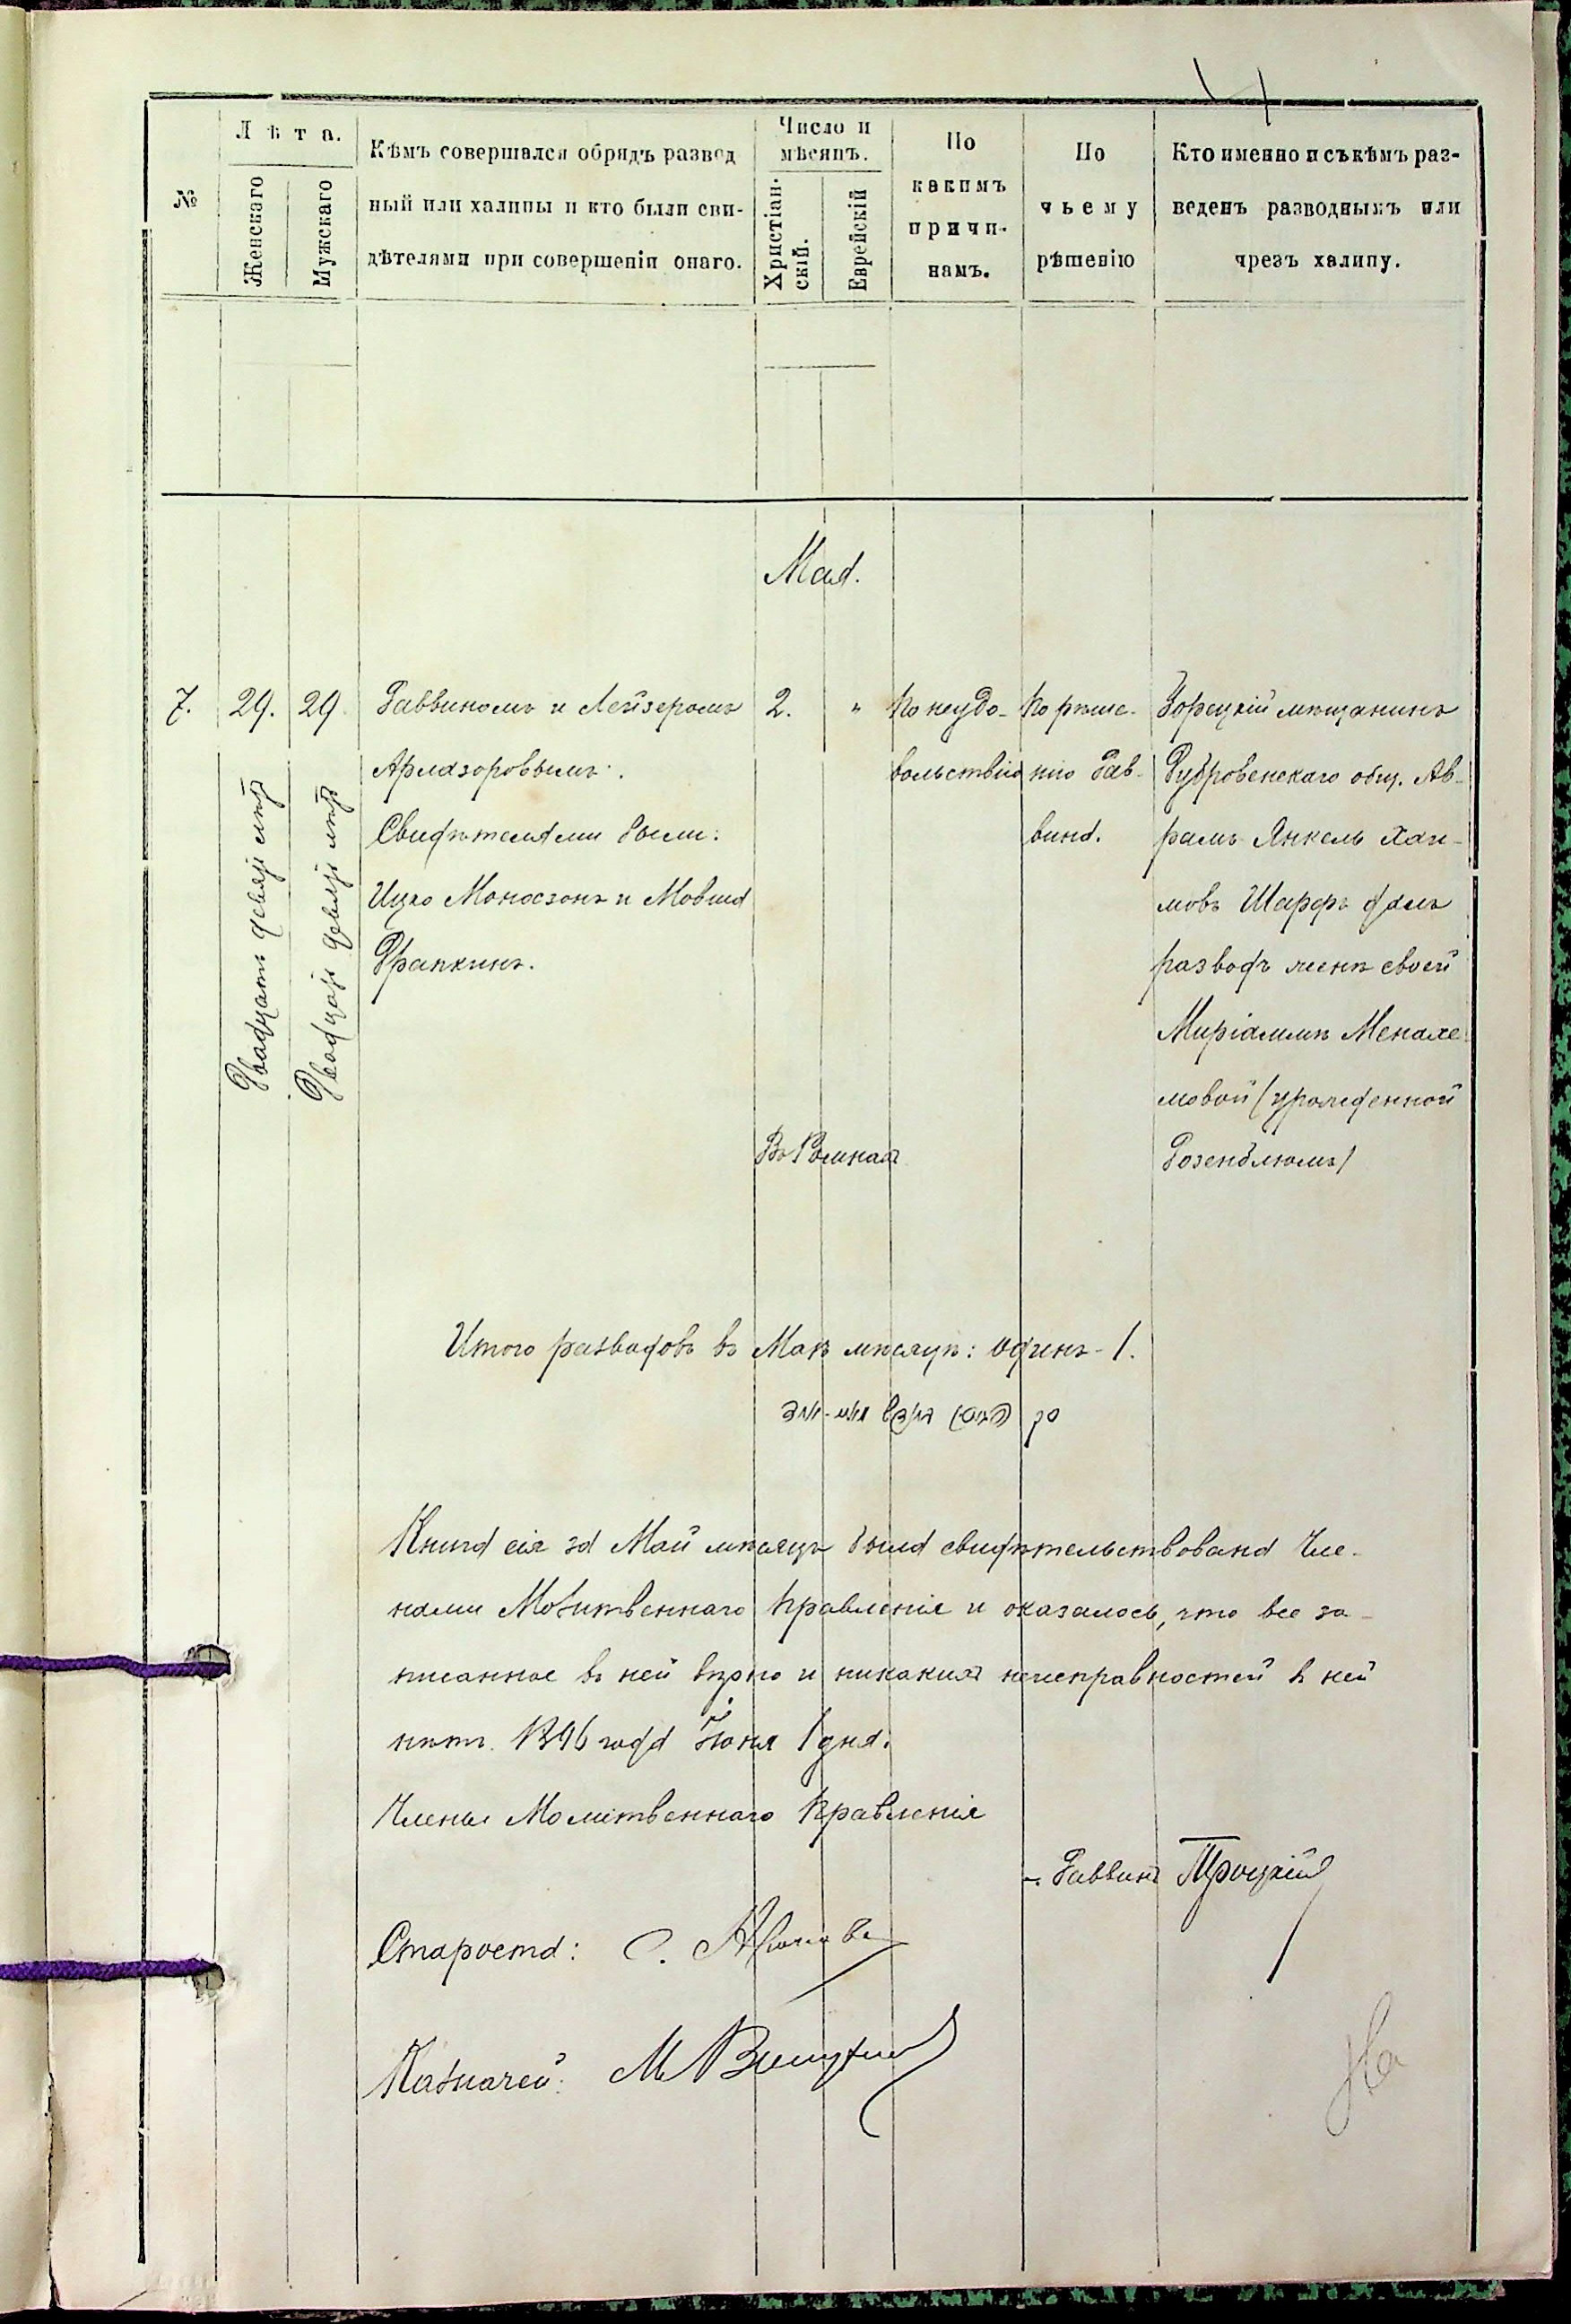 №
Лѣта.
Женскаго
Мужскаго
Кѣмъ совершался обрядъ развод
ный или халицы и кто были сви-
дѣтелями при совершеніи онаго.
Число и
мѣсяцъ.
Христіан-
скій.
Еврейскій
По
какимъ
причи-
намъ.
По
чьему
рѣшенію
Кто именно и съ кѣмъ раз-
веденъ разводнымъ или
чрезъ халицу.
Мая.
7.
29.
Двадцать девять лѣтъ
29
Двадцать девять лѣтъ
Раввиномъ и Лейзеромъ
Армазоровымъ.
Свидѣтелями были:
Ицко Моносзонъ и Мовша
Фрапкинъ.
2.
"
По неудо-
вольствію
По рѣше-
нію Рав-
вина.
Горецкій мѣщанинъ
Дубровенскаго общ. Ав-
рамъ Янкель Хаи-
мовъ Шарфъ далъ
разводъ женѣ своей
Миріаммѣ Менахе-
мовой (урожденной
Розенблюмъ)
Въ Ромнахъ
Итого разводовъ въ Маѣ мѣсяцѣ: одинъ - 1.
Книга сія за Май мѣсяцъ была свидѣтельствована Чле-
нами Молитвеннаго Правленія и оказалось, что все за-
писанное въ ней вѣрно и никакихъ неисправностей въ ней
нѣтъ. 1896 года Іюня 1 дня.
Члены Молитвеннаго Правленія
Раввинъ Троцкій
Староста: С.
Казначей: М